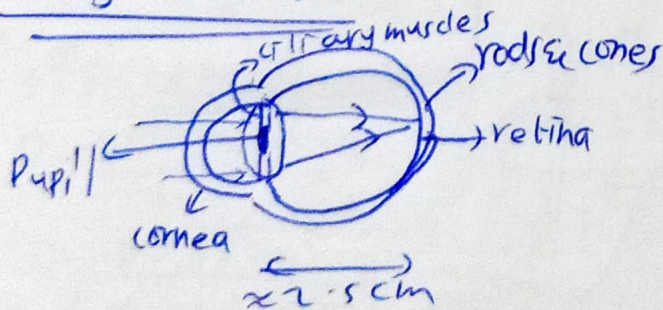 ciliary muscles
rods & cones
retina
Pupil
cornea
≈ 2.5 cm